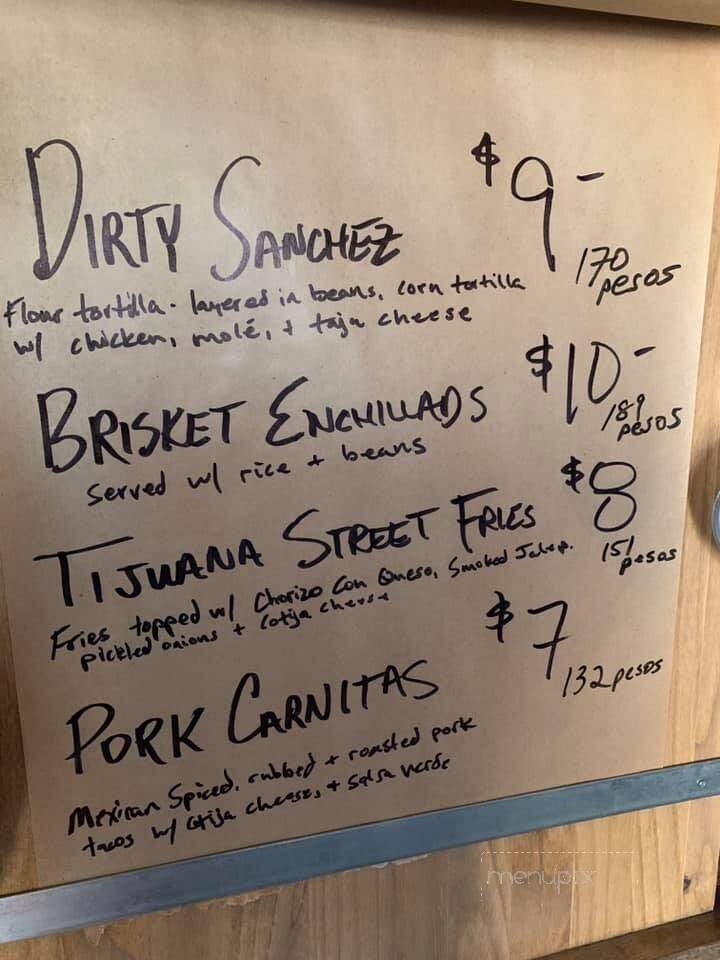 DIRTY SANCHEZ $9-
170
pesos
Flour tortilla - layered in beans, corn tortilla
w/ chicken, molé, + taja cheese
BRISKET ENCHILLADS $10-
189
pesos
Served w/ rice + beans
TIJUANA STREET FRIES $8
151
pesos
Fries topped w/ Chorizo Con Queso, Smoked Jalep.
pickled onions + Cotija cheese
PORK CARNITAS $7
132 pesos
Mexican Spiced, rubbed + roasted pork
tacos w/ Cotija cheese, + Salsa verde
menupix